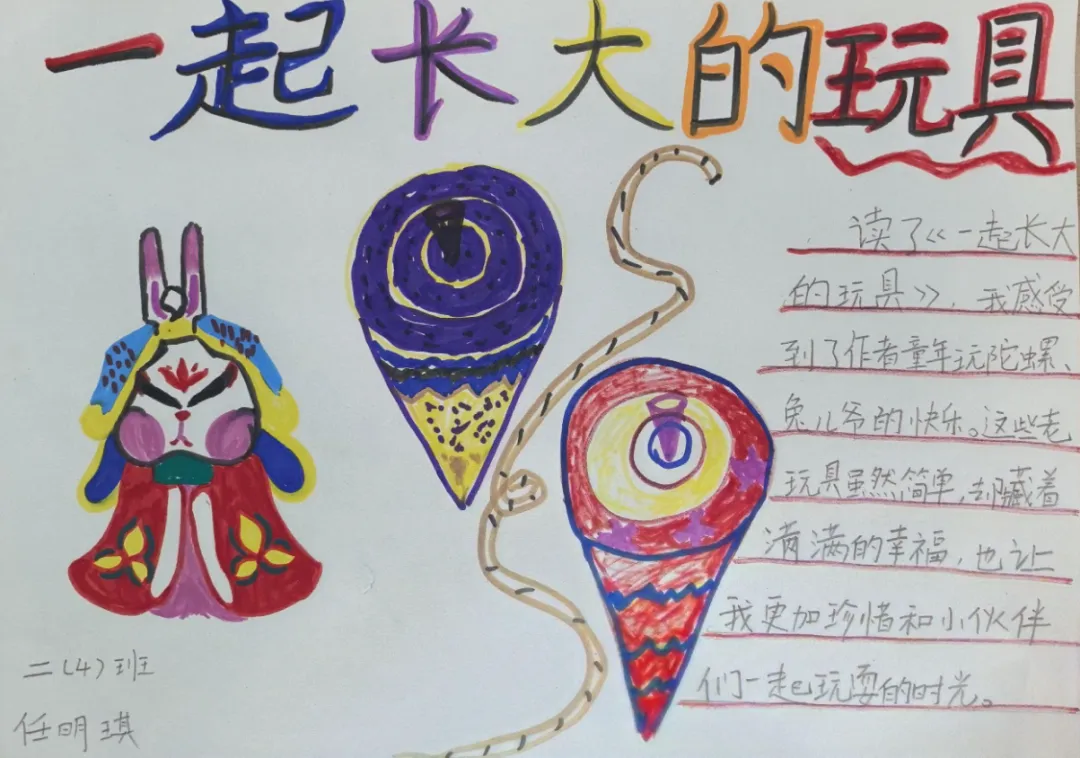 一起长大的玩具
读了《一起长大
的玩具》，我感受
到了作者童年玩陀螺、
兔儿爷的快乐。这些老
玩具虽然简单，却藏着
满满的幸福，也让
我更加珍惜和小伙伴
们一起玩耍的时光。
二（4）班
任明琪